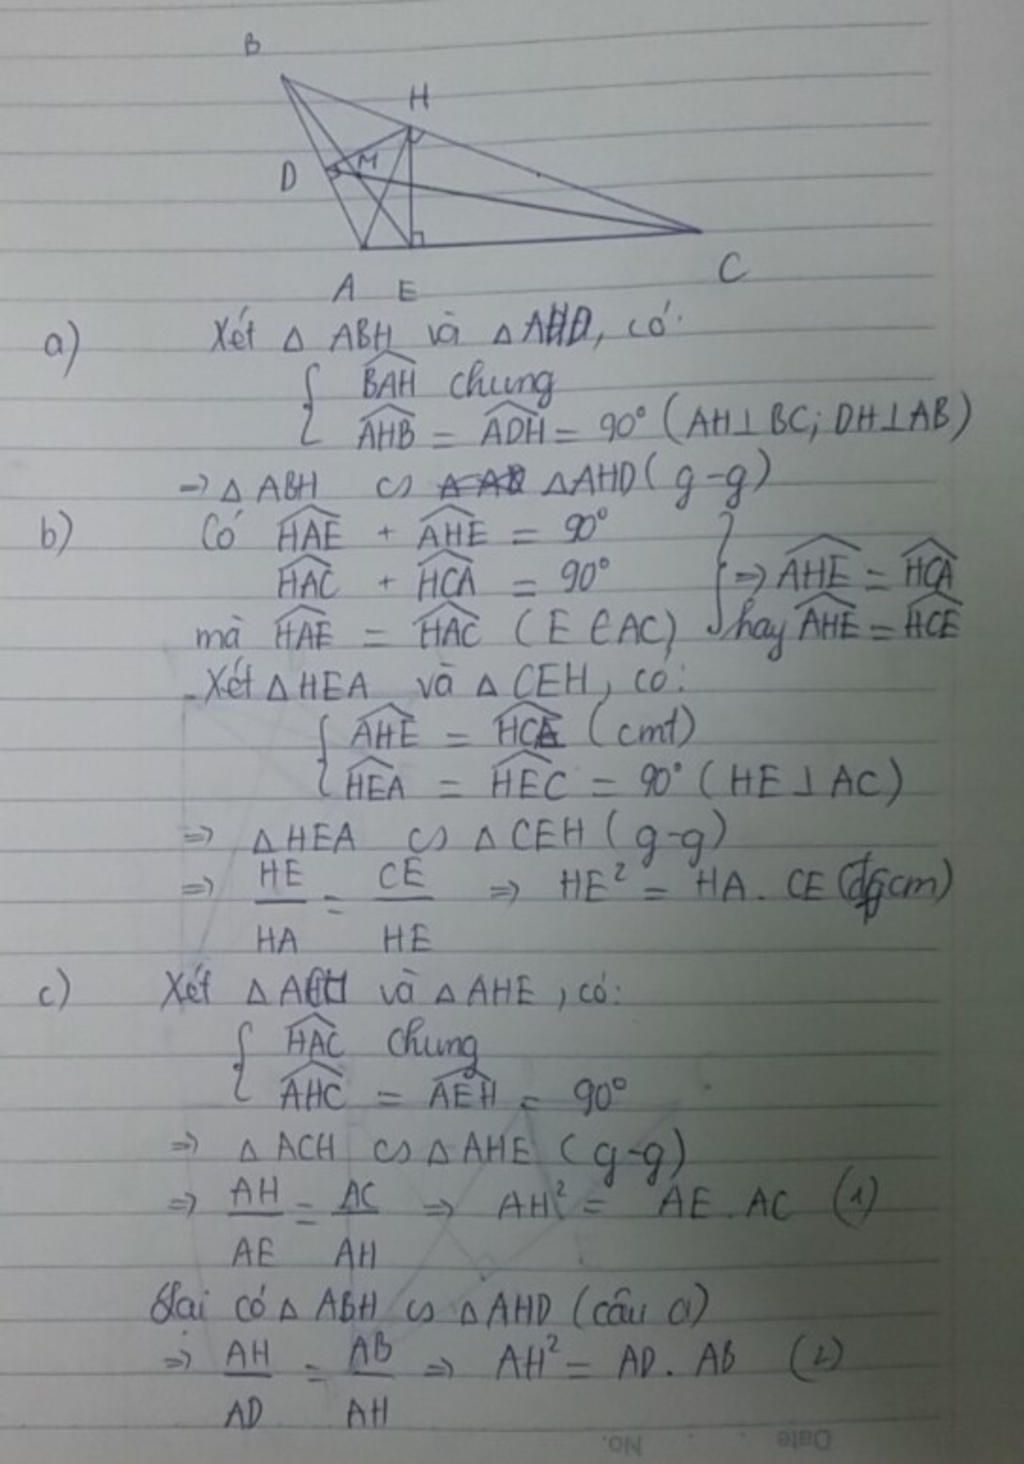 B
H
D M
A E C
a) Xét △ ABH và △ AHD, có:
BAH chung
AHB = ADH = 90° (AH⊥BC; DH⊥AB)
→ △ ABH ∽ △AHD (g-g)
b) Có HAE + AHE = 90°
HAC + HCA = 90° ⇒ AHE = HCA
mà HAE = HAC (E ∈ AC) hay AHE = HCE
Xét △ HEA và △ CEH, có:
AHE = HCE (cmt)
HEA = HEC = 90° (HE ⊥ AC)
⇒ △ HEA ∽ △ CEH (g-g)
⇒ HE/HA = CE/HE ⇒ HE² = HA . CE (đpcm)
c) Xét △ ACH và △ AHE, có:
HAC chung
AHC = AEH = 90°
⇒ △ ACH ∽ △ AHE (g-g)
⇒ AH/AE = AC/AH ⇒ AH² = AE . AC (1)
Lại có △ ABH ∽ △ AHD (câu a)
⇒ AH/AD = AB/AH ⇒ AH² = AD . AB (2)
Date . . No.